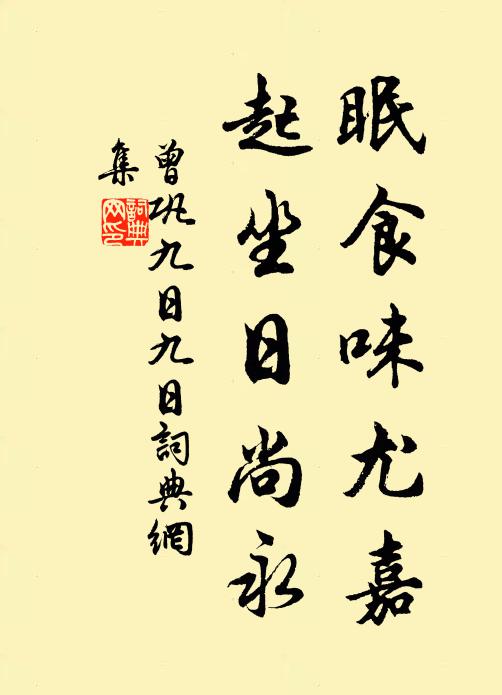 眠食味尤嘉
起坐日尚永
曾巩九日九日詞典網
集
詞典網印